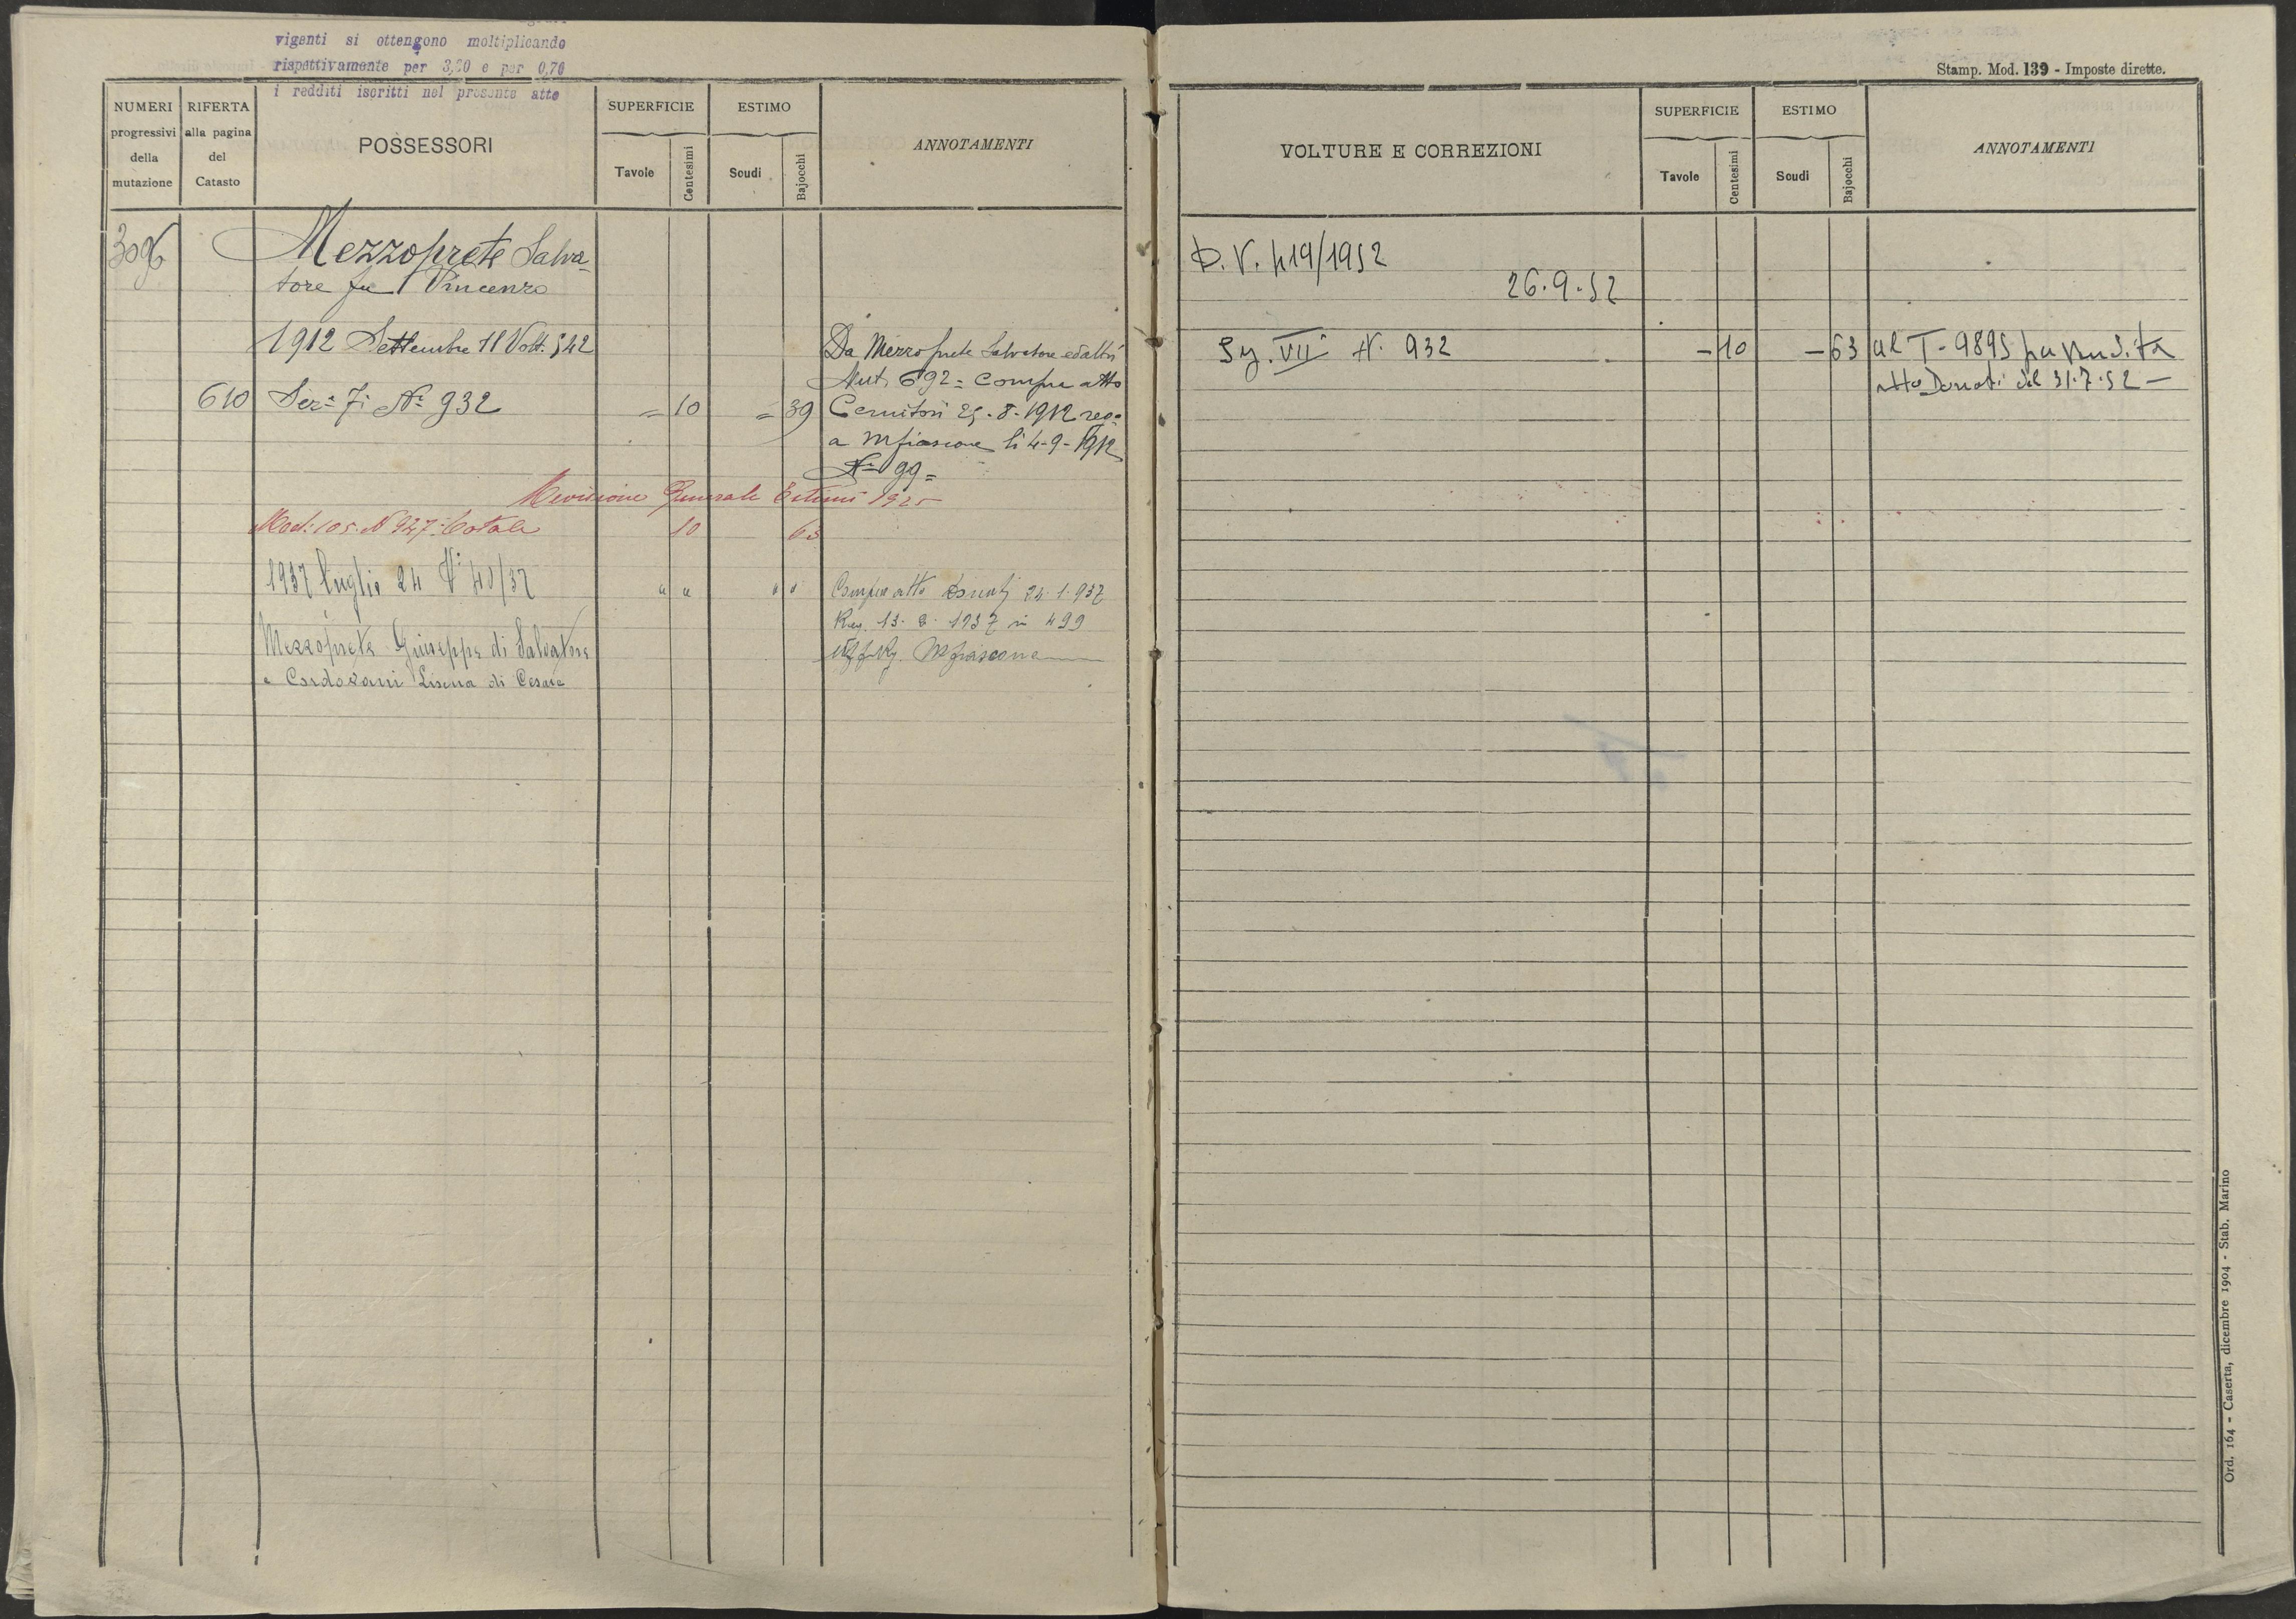 vigenti si ottengono moltiplicando
rispettivamente per 3,20 e per 0,70
i redditi iscritti nel presente atto
NUMERI progressivi della mutazione
RIFERTA alla pagina del Catasto
POSSESSORI
SUPERFICIE
Tavole
Centesimi
ESTIMO
Scudi
Bajocchi
ANNOTAMENTI
Mezzoprete Salva-
tore fu Vincenzo
1912 Settembre 11 Volt. 542
Da Mezzoprete Salvatore ed altri
Mut. 692 = Compra atto
610 Sez. 7ª Nº 932 = 10 = 39 Cernitori 25-8-1912 reg.
a Mfiascone li 4-9-1912
Nº 99 =
Revisione Generale Estimi 1925
Mod. 105 N 927. Totale 10 63
1937 luglio 24 Nº 40/37 " " " " Compra atto Donati 24.1.937
Reg. 13. 2. 1937 n 499
Uff. Reg. Mfiascone
Mezzoprete Giuseppe di Salvatore
e Cordovani Lisena di Cesare
Stamp. Mod. 139 - Imposte dirette.
VOLTURE E CORREZIONI
SUPERFICIE
Tavole
Centesimi
ESTIMO
Scudi
Bajocchi
ANNOTAMENTI
D.V. 419/1952
26.9.52
Sez. VIIª N. 932 - 10 - 63 al T. 9895 per vendita
atto Donati del 31.7.52 -
Ord. 164 - Caserta, dicembre 1904 - Stab. Marino